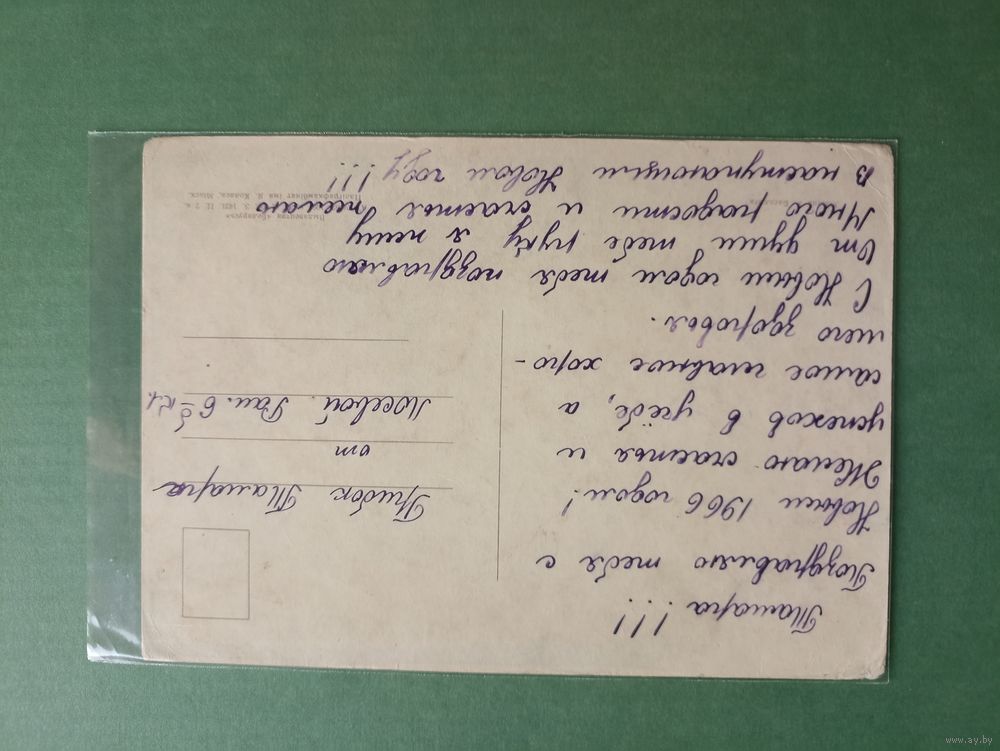 Тамара !!!
Поздравляю тебя с
Новым 1966 годом!
Желаю счастья и
успехов в учёбе, а
самое главное хоро-
шего здоровья.
С Новым годом тебя поздравляю
От души тебе руку я пожму
Много радости и счастья желаю
В наступающем Новом году !!!
Грибок Тамаре
от
Лосевой. Раи. 6 кл.
Выдавецтва «Беларусь»
Паліграфкамбінат імя Я. Коласа. Мінск.
www.ay.by